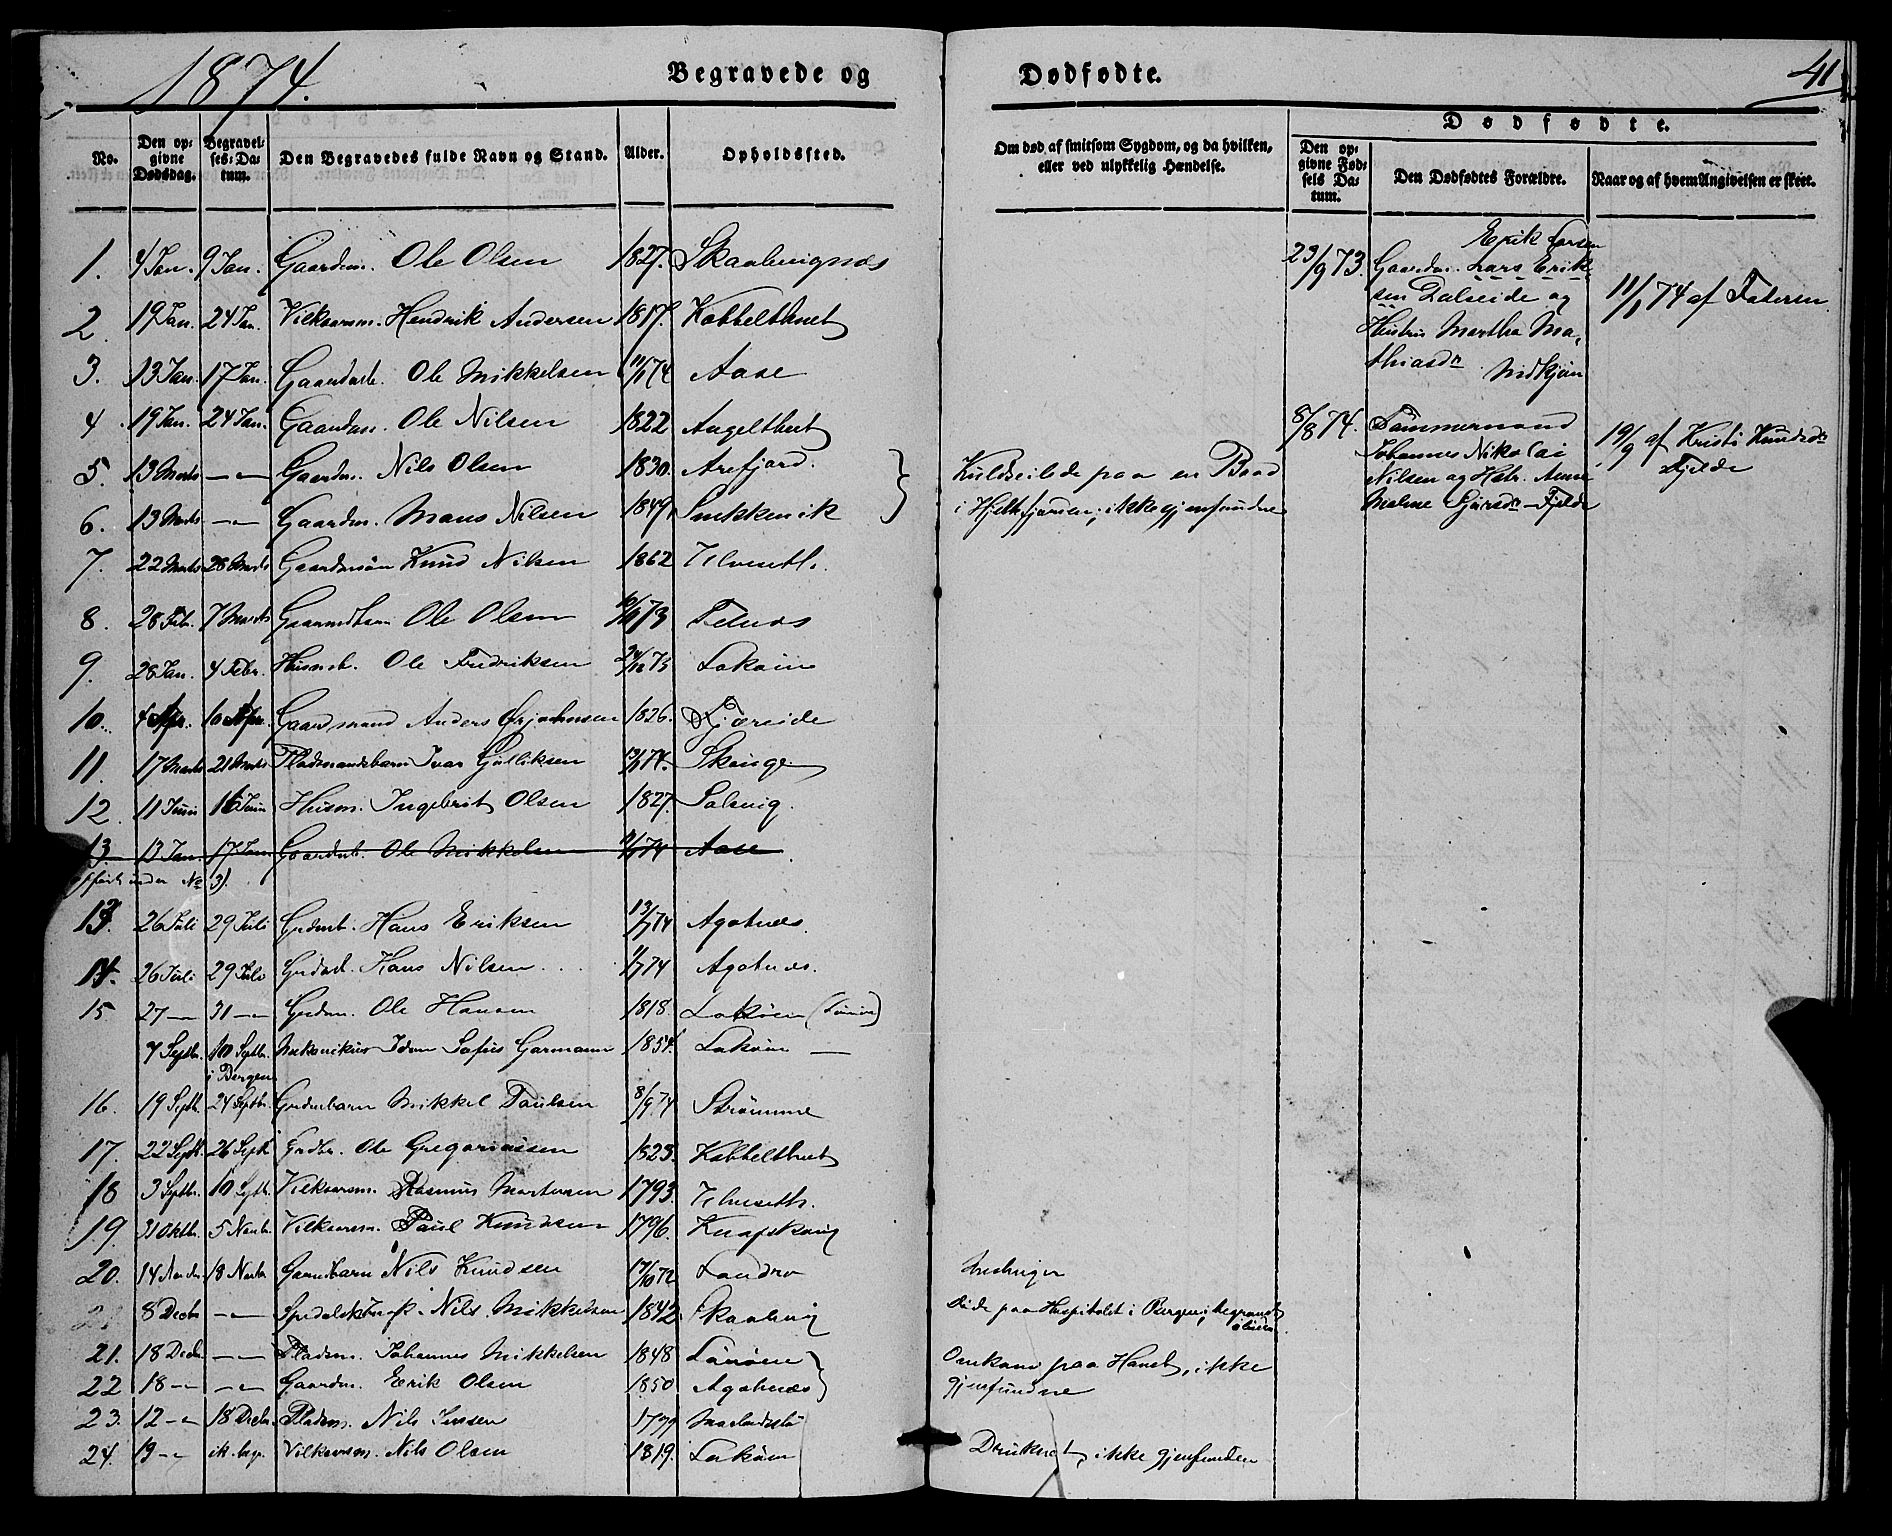 1874.
Begravede og
Dødfødte.
41
No.
Den opgivne Dødsdag.
Begravelses-Datum.
Den Begravedes fulde Navn og Stand.
Alder.
Opholdssted.
Om død af smitsom Sygdom, og da hvilken, eller ved ulykkelig Hændelse.
Dødfødte.
Den opgivne Fødsels Datum.
Den Dødfødtes Forældre.
Naar og af hvem Angivelsen er skeet.
1. 4 Jan. 9 Jan. Gaardm. Ole Olsen 1827. Skaalvignæs
2. 19 Jan. 24 Jan. Vilkaarsm. Hendrik Andersen 1817. Kobbelthvet
3. 13 Jan. 17 Jan. Gaardmb. Ole Mikkelsen 11/1 74 Aase
4. 19 Jan. 24 Jan. Gaardm. Ole Nilsen 1822 Angelthvet
5. 13 Marts -"- Gaardm. Nils Olsen 1830. Arefjord.
6. 13 Marts -"- Gaardm. Mons Nilsen 1849. Snekkevik
Kuldseilede paa en Baad
i Hjeltefjorden; ikke gjenfundne
7. 22 Marts 28 Marts Gaardmsøn Knud Nilsen 1862 Ulveseth.
8. 28 Feb. 7 Marts Gaardmdbarn Ole Olsen 73 Telnæs
9. 28 Jan. 4 Febr. Husmb. Ole Fredriksen 73 Lokøin
10. 4 Apr. 10 Apr. Gaardmand Anders Ørjohnsen 1826. Fjæreide
11. 17 Marts 21 Marts Pladsmandsbarn Ivar Gulliksen 74. Skouge
12. 11 Juni 16 Juni Husm. Ingebrit Olsen 1827. Solsvig.
13. 13 Jan. 17 Jan. Gaardmb. Ole Mikkelsen 11/1 74 Aase
opført under No 3).
13. 26 Juli 29 Juli Grdmb. Hans Eriksen 13/7 74 Agotnæs.
14. 26 Juli 29 Juli Grdmb. Hans Nilsen 7 74 Agotnæs.
15 27 -"- 31 -"- Grdm. Ole Hansen 1818. Lokøen
7 Septbr. 10 Septbr. Mekanikus Sofus Garmann 1854. Lokøen —
i Bergen
16. 19 Septb. 24 Septbr. Grdmbarn Mikkel Paulsen 8/9 74 Strømme
17. 22 Septb. 26 Septb. Grdbr. Ole Gregoriussen 1823. Kobbelthvet
18 3 Septbr. 10 Septb. Vilkaarsm. Rasmus Mortensen 1793. Ulveseth.
19. 31 Oktbr. 5 Novbr. Vilkaarsm. Paul Knudsen 1796. Knapskoug
20. 14 Novbr. 18 Novbr. Gaardbarn Nils Knudsen 17/10 72 Landro
8 Decbr -"- Nils Mikkelsen 1842. Skaalvig
Døde paa Hospitalet i Bergen; begravet
21. 18 Decbr. -"- Pladsm. Johannes Mikkelsen 1848 Lønøen
22 18 -"- -"- Gaardm. Erik Olsen 1850 Agotnæs
Omkom paa Havet, ikke
gjenfundne
23. 12 -"- 18 Decbr. Pladsm. Nils Jensen
24. 19 -"- ik. begr. Vilkaarsm. Nils Olsen 1819. Lokøen
Druknet, ikke gjenfunden
23/9 73.
Erik Larsen
Gaardm. Lars Erik-
sen Dalseide og
Hustru Martha Ma-
thiasdr
11/1 74 af Faderen
8/8 74.
Tømmermand
Johannes Nikolai
Nilsen og Hstr. Anne
Malene Fjelde
19/9 af Kristi Knudsdr
Fjelde